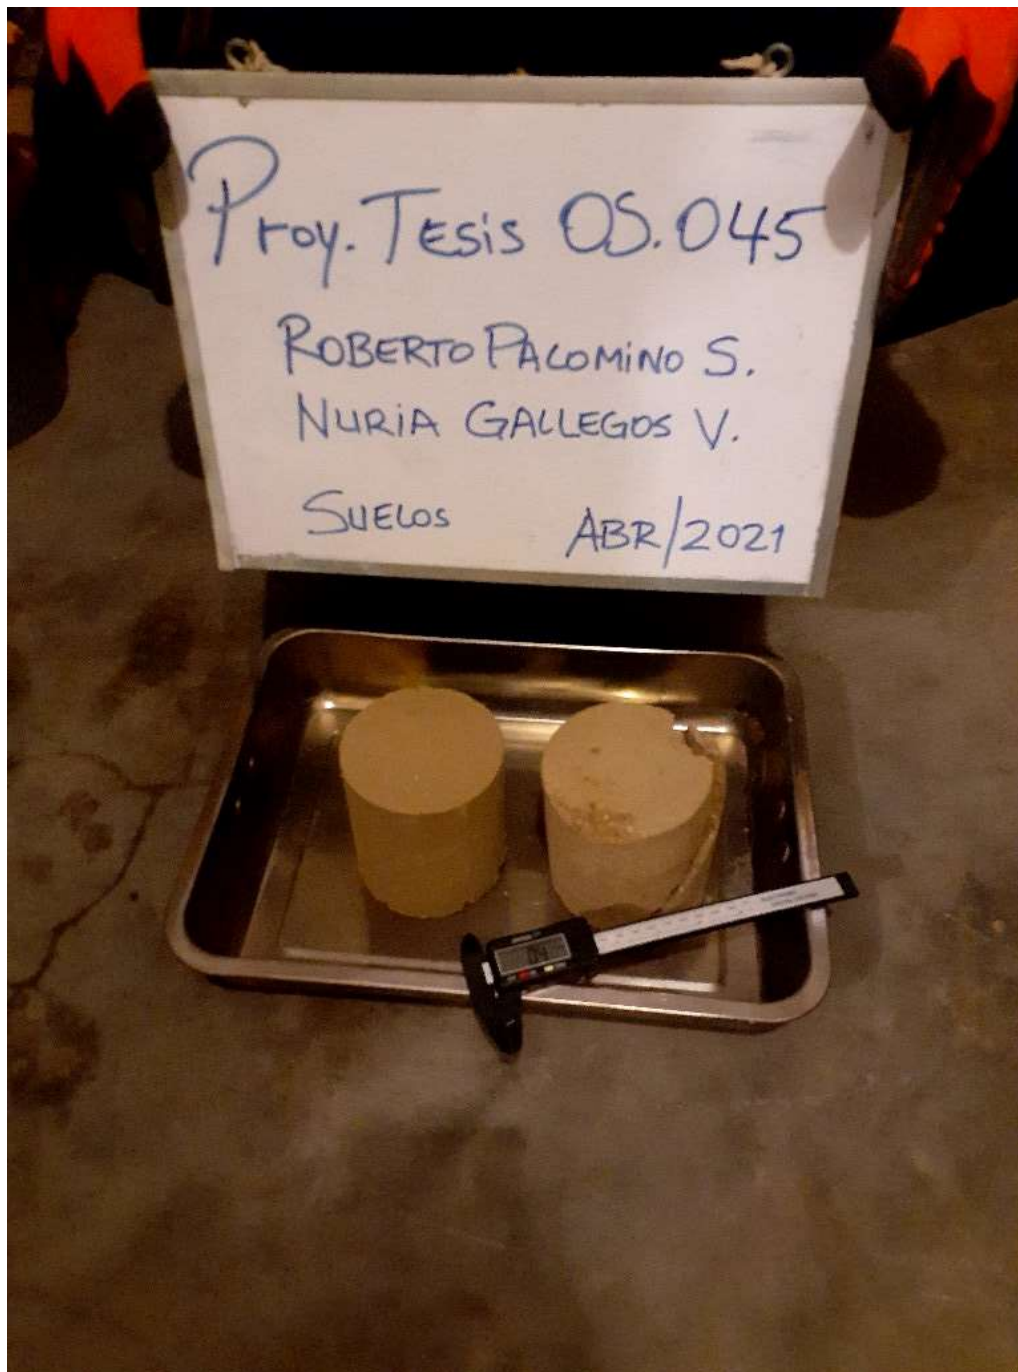 Proy. Tesis OS.045
ROBERTO PALOMINO S.
NURIA GALLEGOS V.
SUELOS ABR/2021